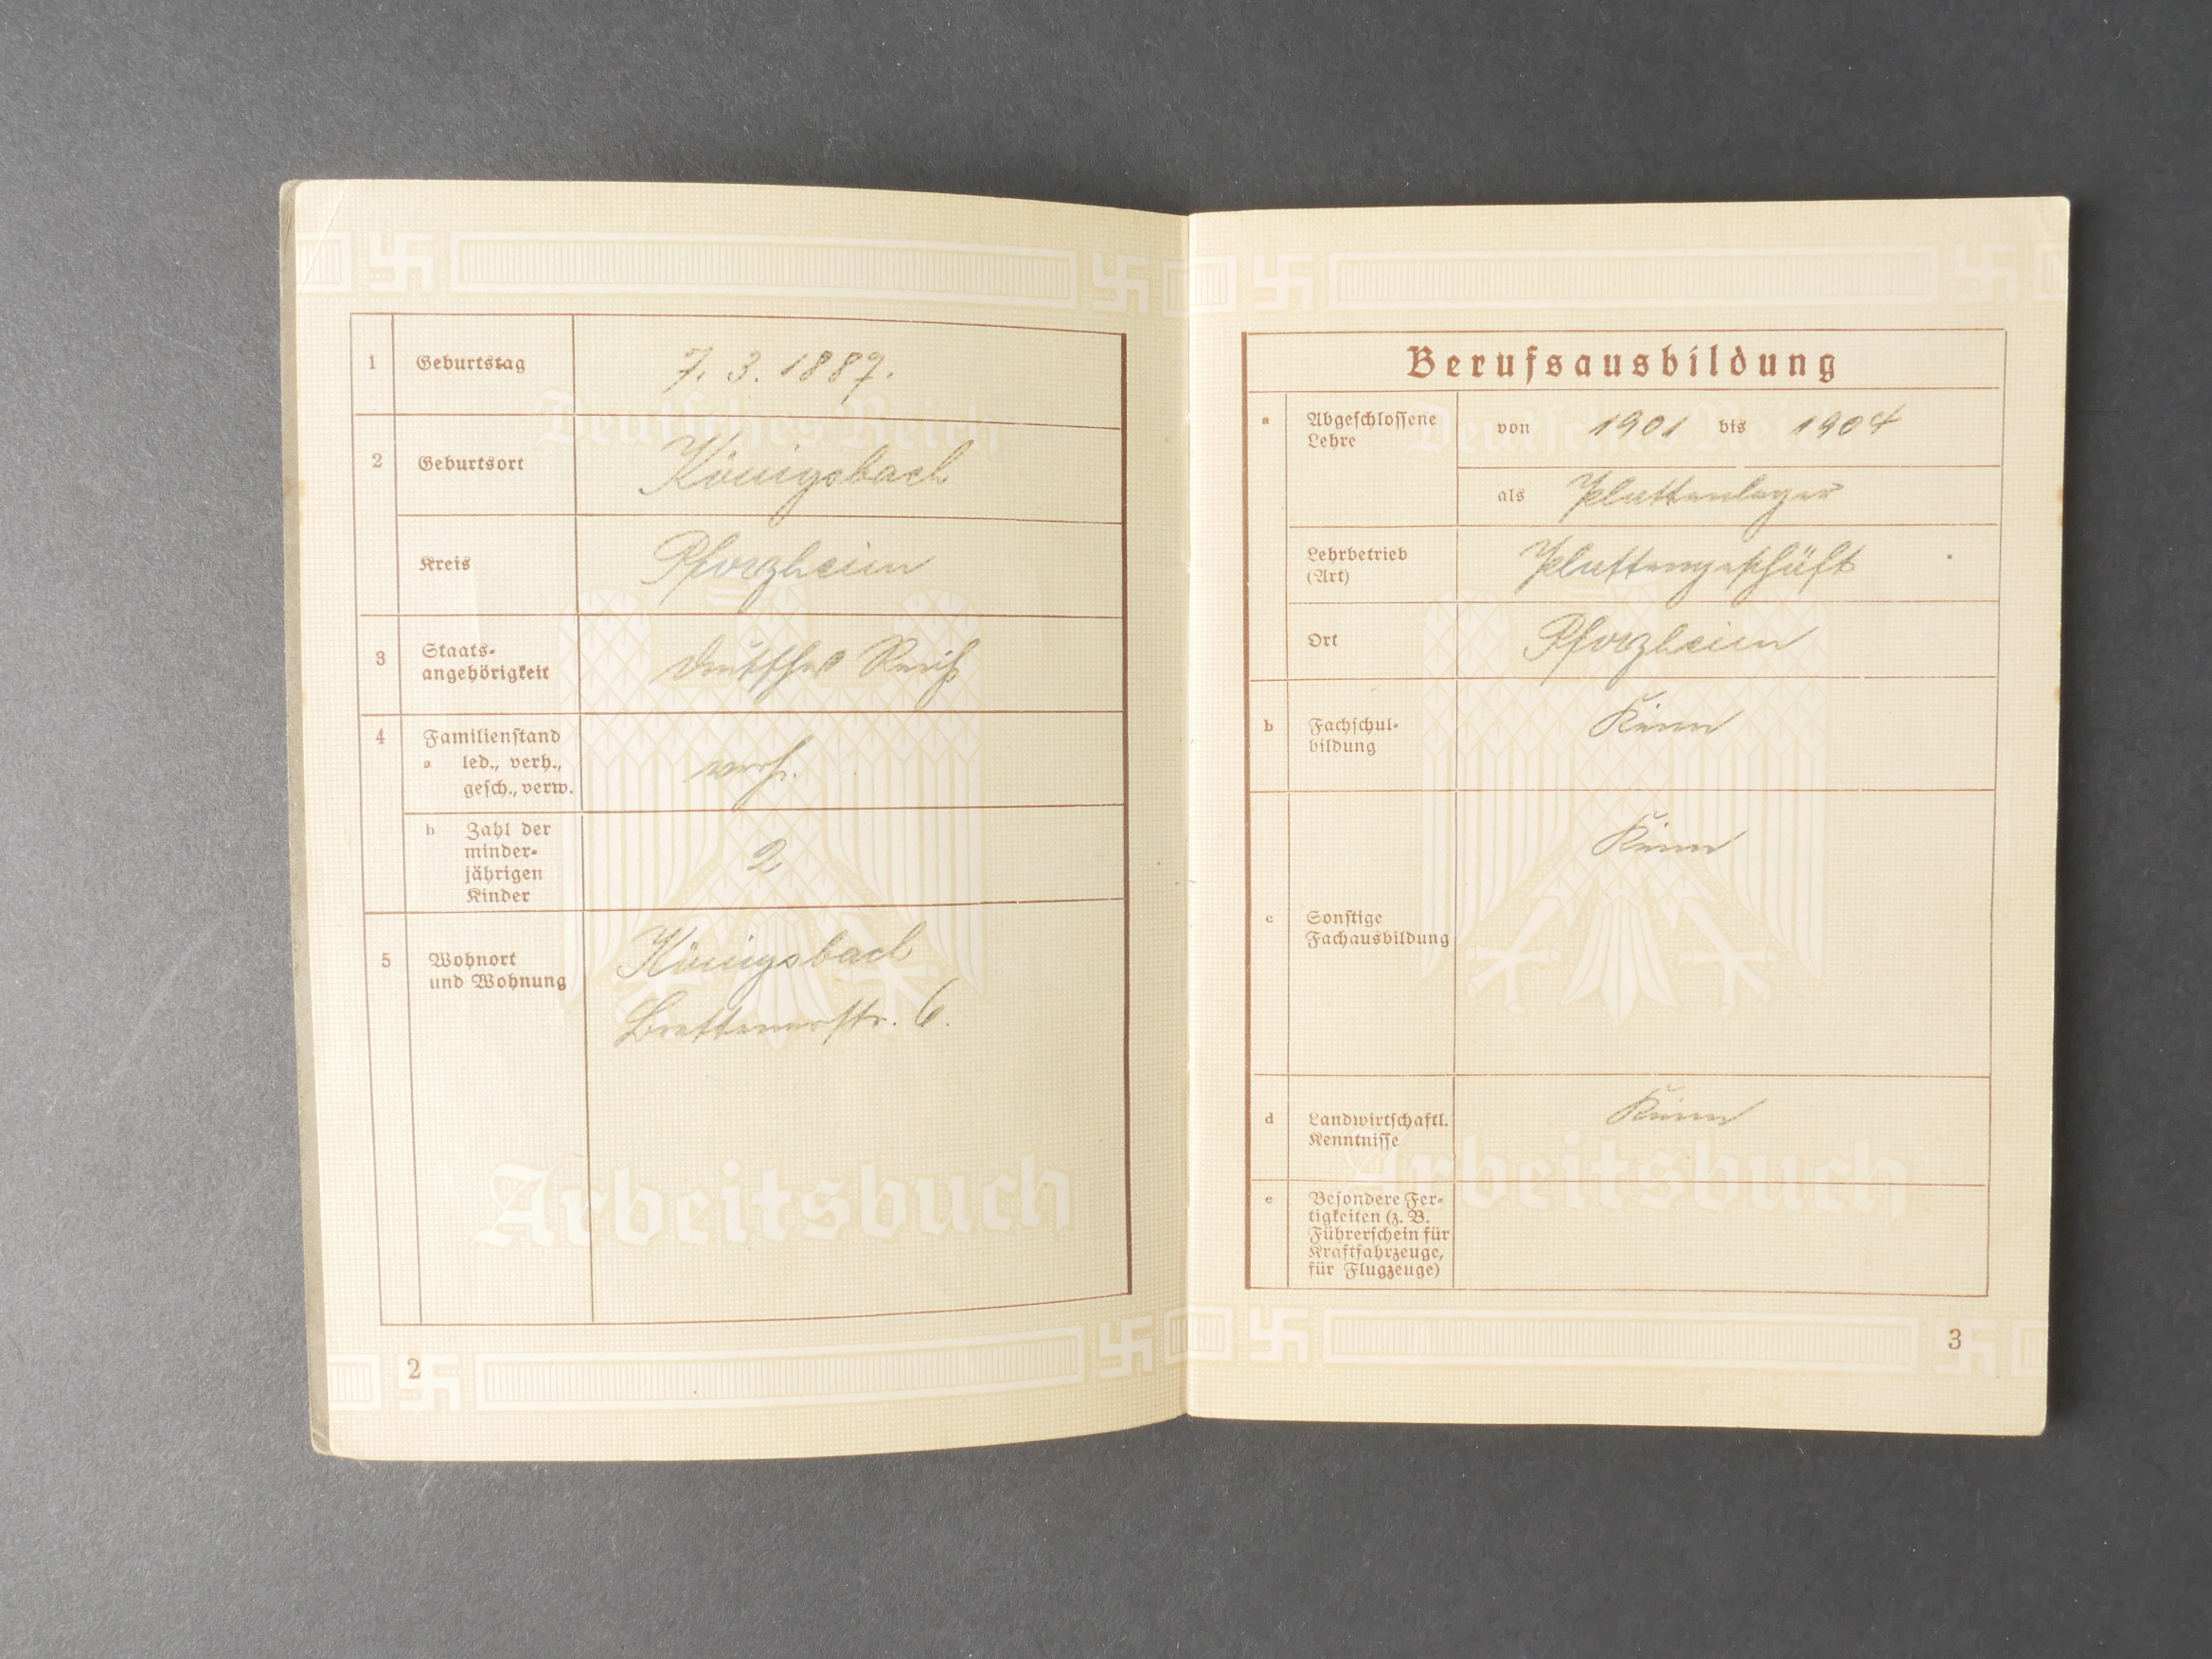 1 Geburtstag 7. 3. 1887.
Deutsches Reich
2 Geburtsort Königsbach
Kreis Pforzheim
3 Staats-
angehörigkeit deutsches Reich
4 Familienstand
a led., verh.,
gesch., verw. verh.
b Zahl der
minder-
jährigen
Kinder 2
5 Wohnort
und Wohnung Königsbach
Brettenerstr. 6.
Arbeitsbuch
2
Berufsausbildung
Deutsches Reich
a Abgeschlossene
Lehre von 1901 bis 1904
als Plattenleger
Lehrbetrieb
(Art) Plattengeschäft
Ort Pforzheim
b Fachschul-
bildung Keine
c Sonstige
Fachausbildung Keine
d Landwirtschaftl.
Kenntnisse Keine
Arbeitsbuch
e Besondere Fer-
tigkeiten (z. B.
Führerschein für
Kraftfahrzeuge,
für Flugzeuge)
3